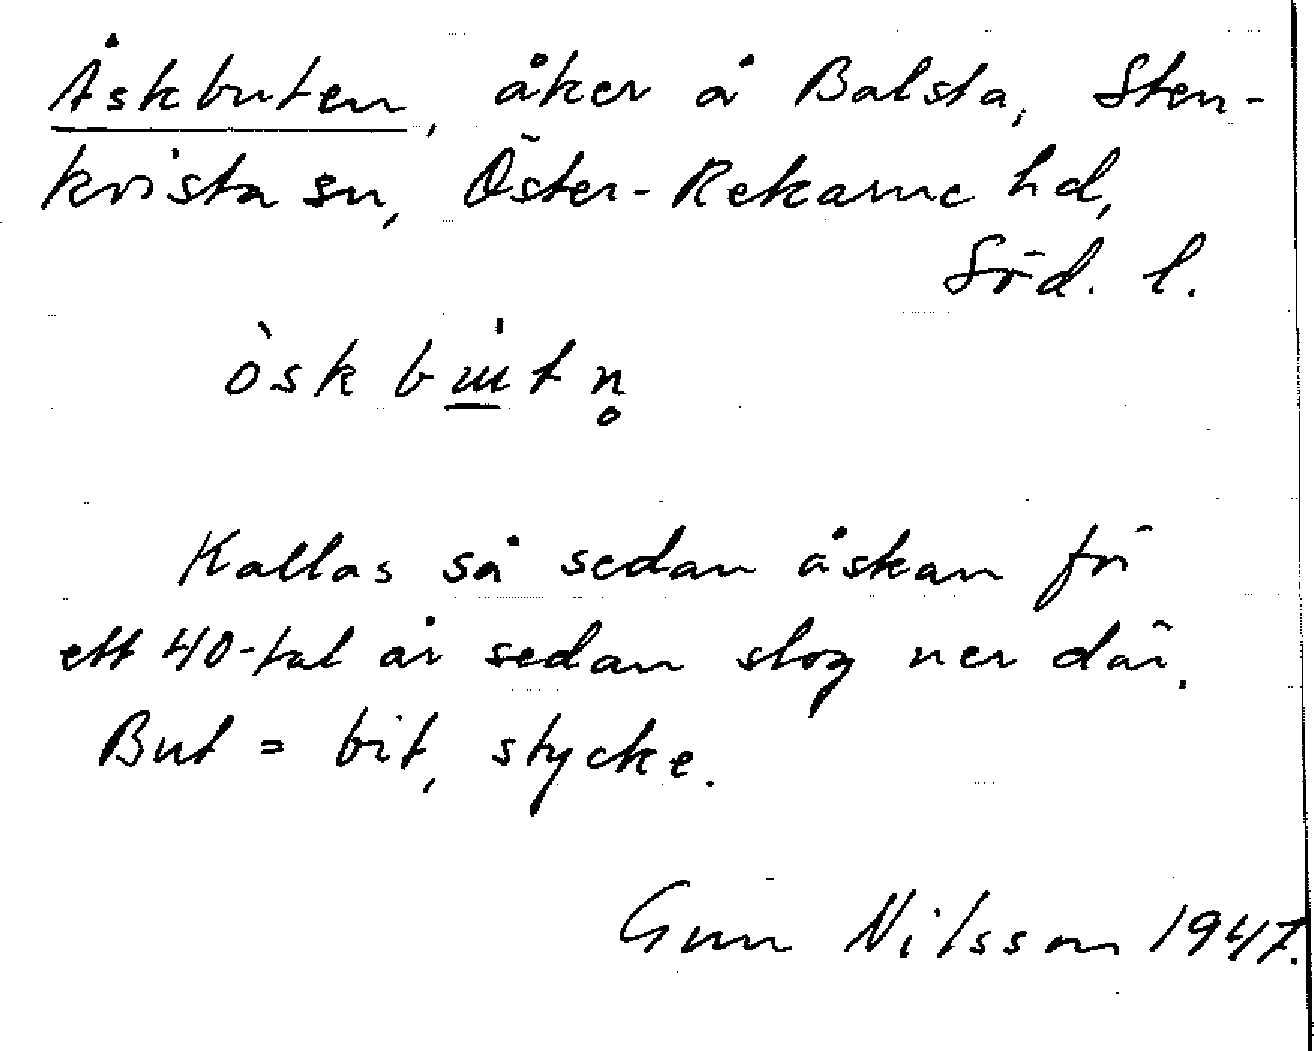 Åskbuten, åker å Balsta, Sten-
kvista sn, Öster-Rekarne hd,
Söd. l.
òskbu̲tn̥
Kallas så sedan åskan för
ett 40-tal år sedan slog ner där.
But = bit, stycke.
Gun Nilsson 1947.